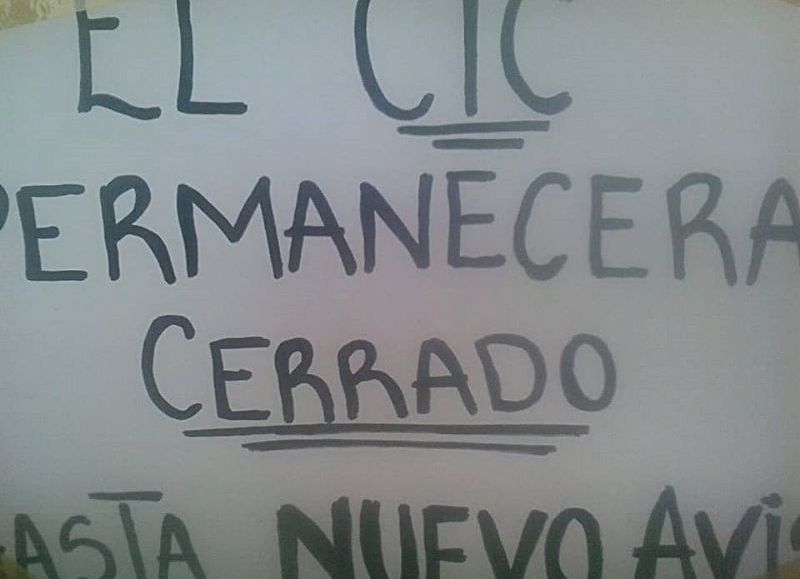 EL CIC
PERMANECERA
CERRADO
HASTA NUEVO AVISO